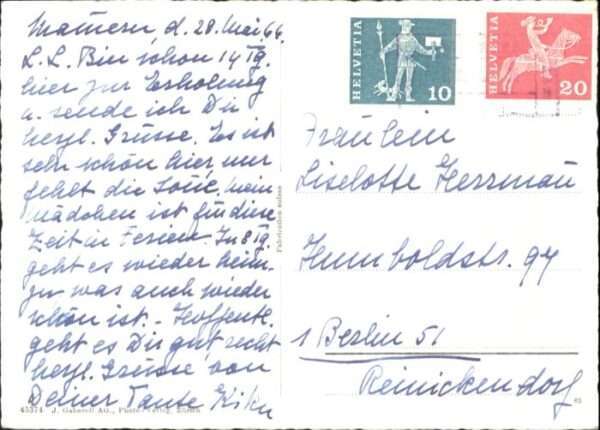 Mamern, d. 28. Mai 66.
L. L. Bin schon 14 Tg.
hier zur Erholung
u. sende ich Dir
herzl. Grüsse. Es ist
sehr schön hier, nur
fehlt die Sone, mein
mädchen ist für diese
Zeit in Ferien. In 8 Tg.
geht es wieder heim-
zu was auch wieder
schön ist. - Hoffentl.
geht es Dir gut, recht
herzl. Grüsse von
Deiner Tante
45374 J. Gaberell AG., Zürich
Fabrication suisse
HELVETIA 10
HELVETIA 20
Fräulein
Liselotte Herrmau
Humboldstr. 94
1 Berlin 51
Reinickendorf